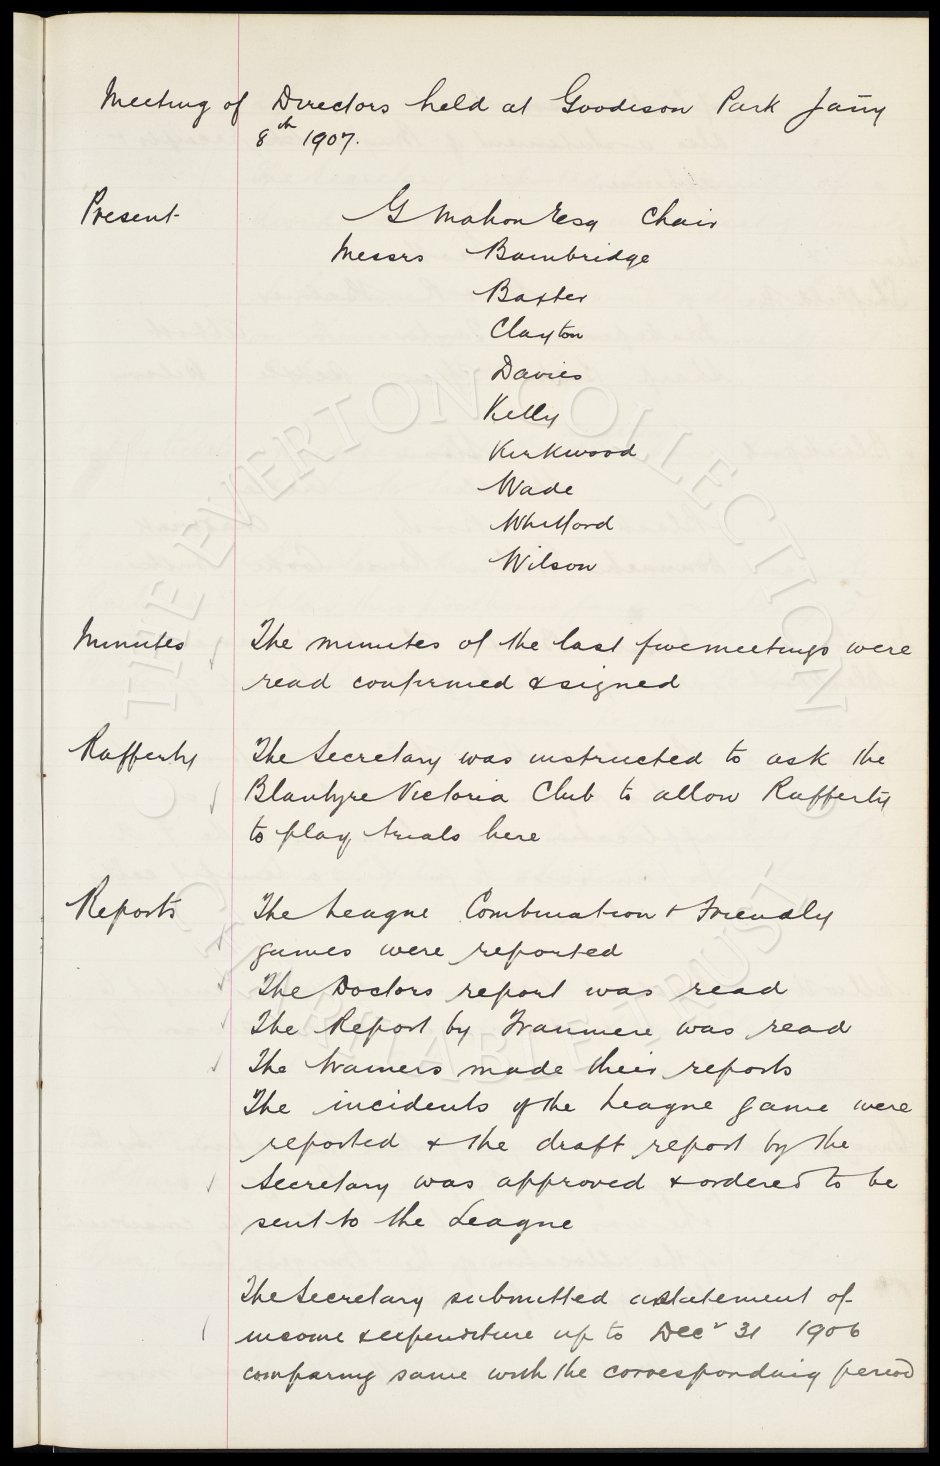 Meeting of Directors held at Goodison Park Jany
8th 1907.
Present G Mahon Esq Chair
Messrs Bainbridge
Baxter
Clayton
Davies
Kelly
Kirkwood
Wade
Whitford
Wilson
Minutes The minutes of the last five meetings were
read confirmed & signed
Rafferty The Secretary was instructed to ask the
Blantyre Victoria Club to allow Rafferty
to play trials here
Reports The League Combination & Friendly
games were reported
The Doctors report was read
The Report by Tranmere was read
The trainers made their reports
The incidents of the League game were
reported & the draft report by the
Secretary was approved & ordered to be
sent to the League
The Secretary submitted a statement of
income & expenditure up to Decr 31 1906
comparing same with the corresponding period
THE EVERTON COLLECTION
CHARITABLE TRUST